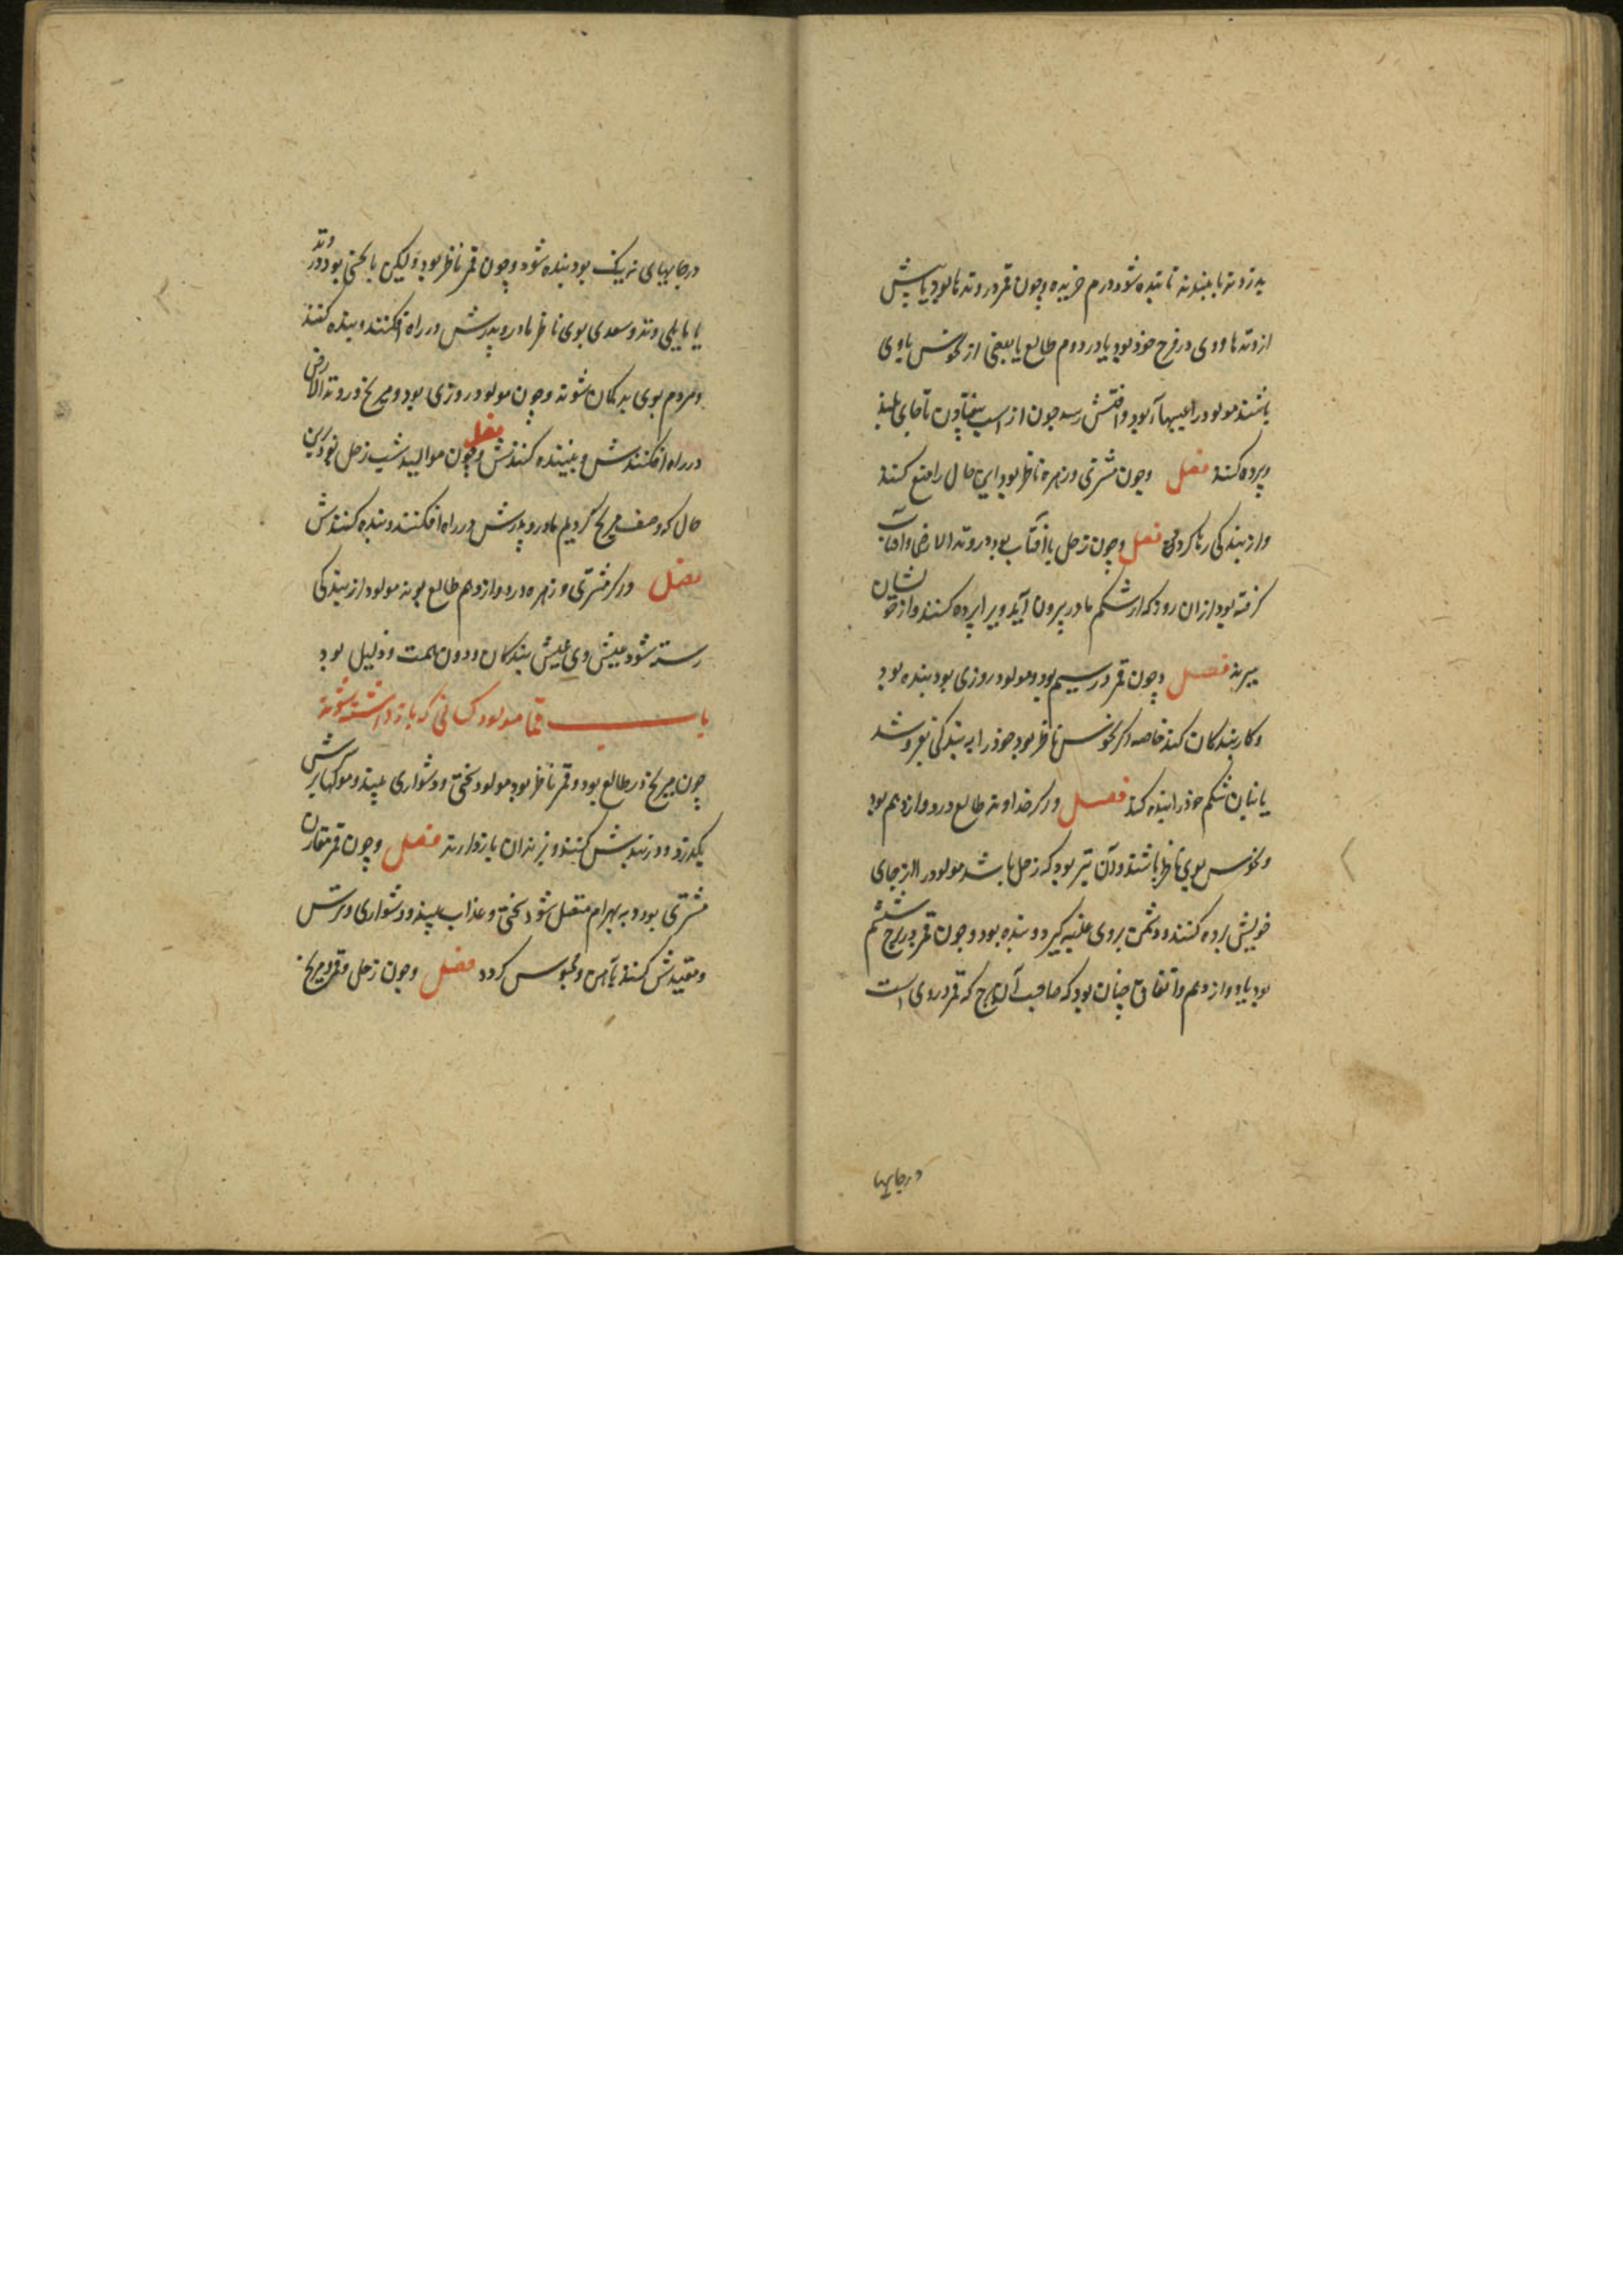 بدزدند یا ببندند تا بنده شود درم خریده و چون قمر در وتدها بود یا پیش
از وتدها و وی در فرح خوذ بود یا در دوم طالع یا بعضی از نحوس باوی
باشند مولود را عیبها بود و افتش رسد چون از اسب بیفتادن تا جای بلند
و برده کنند فصل و چون مشتری و زهره ناظر بود این حال را منع کنند
و از بندکی رها کردد فصل و چون زحل با آفتاب بود در وتد الارض و آفتاب
کرفته بود از ان رود که از شکم مادر بیرون آید ویرا برده کنند و از خوشان
ببرند فصل و چون قمر در سیم بود و مولود روزی بود بنده بود
و کار بندکان کند خاصه اکر نحوس ناظر بود خوذ را به بندکی بفروشد
یا بنان شکم خوذ را بنده کند فصل و اکر خداوند طالع در دوازدهم بود
و نحوس بوی ناظر باشند و آن تیر بود که زحل باشد مولود را از جای
خویش برده کنند و دشمن بروی غلبه کیرد و بنده بود و چون قمر در برج ششم
بود یا دوازدهم و اتفاق چنان بود که صاحب آن برج که قمر در وی است
درجایها
درجایهای نه نیک بود بنده شود و چون قمر ناظر بود ولیکن با نحسی بود در وتد
یا مایلی وتد و سعدی بوی ناظر مادر و پدرش در راه افکنند و بنده کنند
و مردم بوی بدکمان شوند و چون مولود روزی بود و مریخ در وتد الارض
در راه افکنندش و ببینده کنندش فصل و چون موالید شب زحل بود درین
حال که وصف مریخ کردیم مادر و پدرش در راه افکنند و بنده کنندش
فصل و اکر مشتری و زهره در دوازدهم طالع بوند مولود از بندکی
رسته شود عیش وی عیش بندکان و دون همت و ذلیل بود
باب مولود کسانی که بازداشته شوند
چون مریخ در طالع بود و قمر ناظر بود مولود سختی و دشواری بیند و موکلها برسرش
بکدرد و در بندش کنند و بزندان بازدارند فصل و چون قمر مقارن
مشتری بود و به بهرام متصل شود سختی و عذاب بیند و دشواری و ترس
و مقیدش کنند بآهن و محبوس کردد فصل و چون زحل و قمر و مریخ